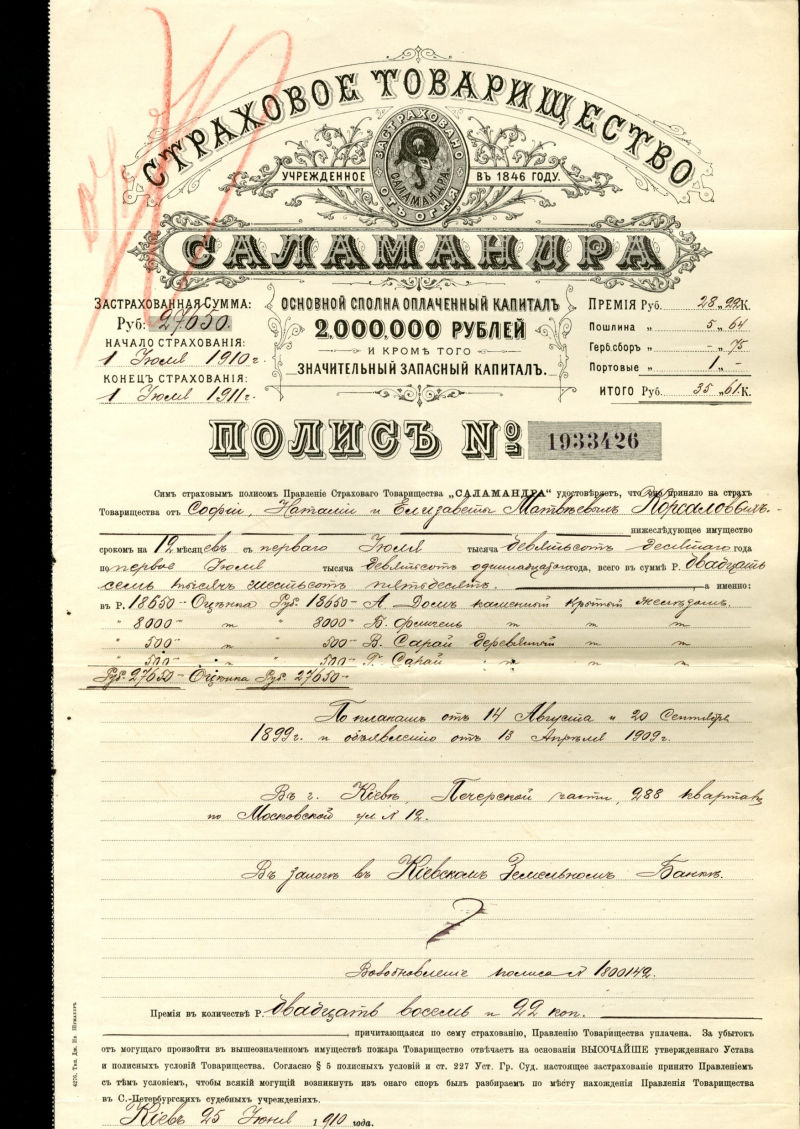 СТРАХОВОЕ ТОВАРИЩЕСТВО
ЗАСТРАХОВАНО
САЛАМАНДРА
ОТЪ ОГНЯ
УЧРЕЖДЕННОЕ ВЪ 1846 ГОДУ.
САЛАМАНДРА
ЗАСТРАХОВАННАЯ СУММА:
Руб: 27650.
НАЧАЛО СТРАХОВАНІЯ:
1 Іюля 1910 г.
КОНЕЦЪ СТРАХОВАНІЯ:
1 Іюля 1911 г.
ОСНОВНОЙ СПОЛНА ОПЛАЧЕННЫЙ КАПИТАЛЪ
2,000,000 РУБЛЕЙ
И КРОМѢ ТОГО
ЗНАЧИТЕЛЬНЫЙ ЗАПАСНЫЙ КАПИТАЛЪ.
ПРЕМІЯ Руб. 28 „ 22 К.
Пошлина „ 5 „ 64
Герб.сборъ „ - „ 75
Портовые „ 1 „ -
ИТОГО Руб. 35 „ 61 К.
ПОЛИСЪ № 1933426
Симъ страховымъ полисомъ Правленіе Страховаго Товарищества „САЛАМАНДРА“ удостовѣряетъ, что оно приняло на страхъ
Товарищества отъ Софіи, Наталіи и Елизаветы Матвѣевыхъ
нижеслѣдующее имущество
срокомъ на 12 мѣсяцевъ съ перваго Іюля тысяча девятьсотъ десятаго года
по первое Іюля тысяча девятьсотъ одиннадцатаго года, всего въ суммѣ Р. двадцать
семь тысячъ шестьсотъ пятьдесятъ. а именно:
въ Р. 18650 - Оцѣнка Руб. 18650 - А. Домъ каменный крытый желѣзомъ.
„ 8000 - „ „ 8000 - Б. Флигель „ „ „
„ 500 - „ „ 500 - В. Сарай деревянный „ „
„ 500 - „ „ 500 - Г. Сарай „ „ „
Руб. 27650 - Оцѣнка Руб. 27650 -
По планамъ отъ 14 Августа и 20 Сентября
1899 г. и объявленію отъ 13 Апрѣля 1909 г.
Въ г. Кіевѣ, Печерской части, 288 квартала
по Московской ул № 12.
Въ залогѣ въ Кіевскомъ Земельномъ Банкѣ.
Возобновленіе полиса № 1800142.
Премія въ количествѣ Р. двадцать восемь и 22 коп.
, причитающаяся по сему страхованію, Правленію Товарищества уплачена. За убытокъ
отъ могущаго произойти въ вышеозначенномъ имуществѣ пожара Товарищество отвѣчаетъ на основаніи ВЫСОЧАЙШЕ утвержденнаго Устава
и полисныхъ условій Товарищества. Согласно § 5 полисныхъ условій и ст. 227 Уст. Гр. Суд. настоящее застрахованіе принято Правленіемъ
съ тѣмъ условіемъ, чтобы всякій могущій возникнуть изъ онаго споръ былъ разбираемъ по мѣсту нахожденія Правленія Товарищества
въ С.-Петербургскихъ судебныхъ учрежденіяхъ.
Кіевъ 25 Іюня 1910 года.